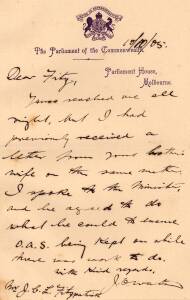 The Parliament of the Commonwealth.
Parliament House,
Melbourne.
Dear Fitz,
Yours reached me all
right, but I had
previously received a
letter from your brother's
wife on the same matter.
I spoke to the Minister,
and he agreed to do
what he could to ensure
O.A.S. being kept on while
there was work to do.
With kind regards,
Mr J. C. L. Fitzpatrick